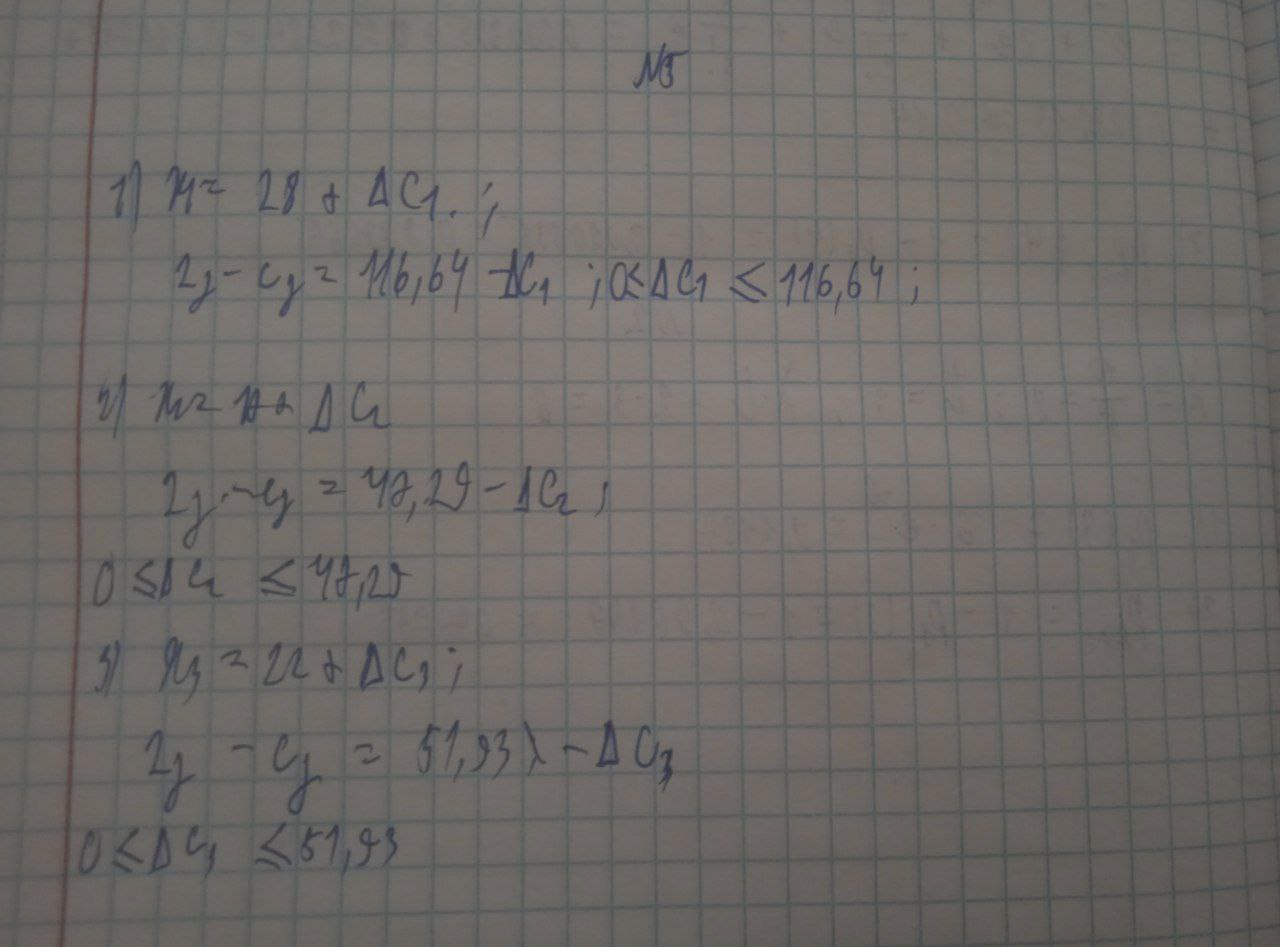 №5
1) x₁ = 28 + ΔC₁.;
zj - cj = 116,64 - ΔC₁ ; 0 ≤ ΔC₁ ≤ 116,64 ;
2) x₂ = + ΔC₂
zj - cj = 47,29 - ΔC₂ ;
0 ≤ ΔC₂ ≤ 47,29
3) x₃ = 22 + ΔC₃ ;
zj - cj = 51,93 - ΔC₃
0 ≤ ΔC₃ ≤ 51,93